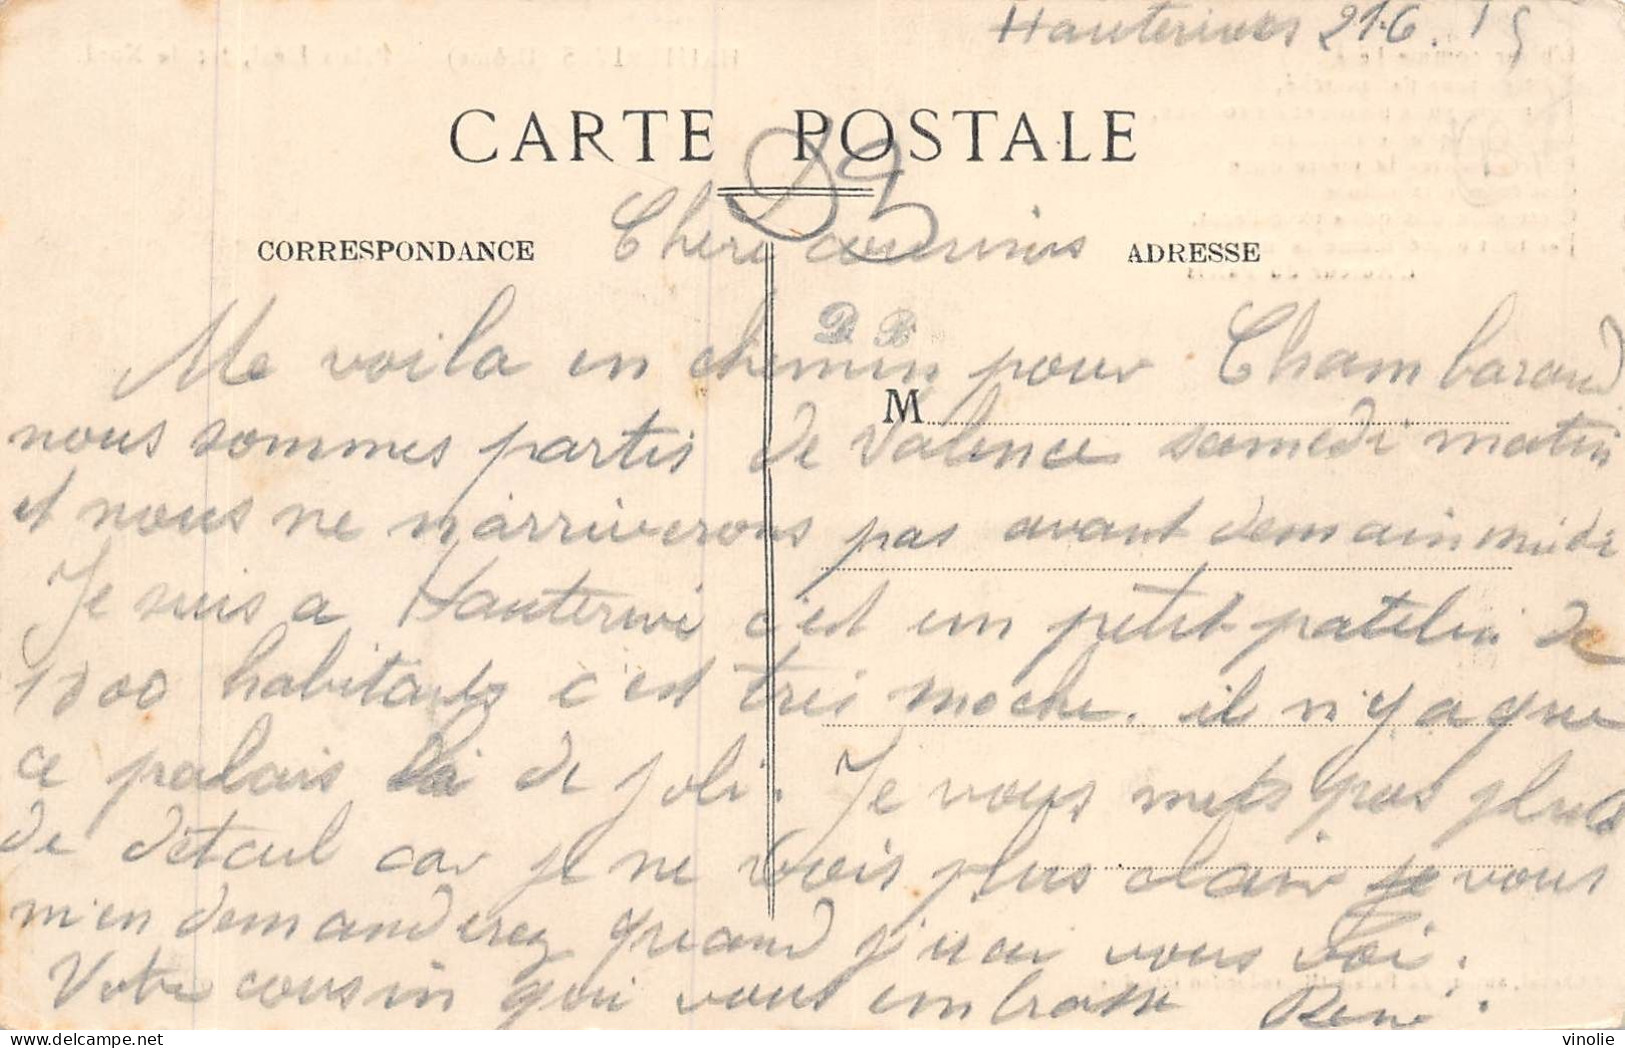 Hauterives 21.6.15
CARTE POSTALE
CORRESPONDANCE
ADRESSE
Cheri cousines
Me voila en chemin pour Chambarand
M
nous sommes partis de Valence samedi matin
et nous ne n'arriverons pas avant demain midi
Je suis a Hauterive c'est un petit patelin de
1800 habitants c'est tres moche. il n'y a que
ce palais là de joli. Je vous mets pas plus
de detail car je ne vois plus clair je vous
m'en demanderez quand j'irai vous voi.
Votre cousin qui vous embrasse René.
vinolie